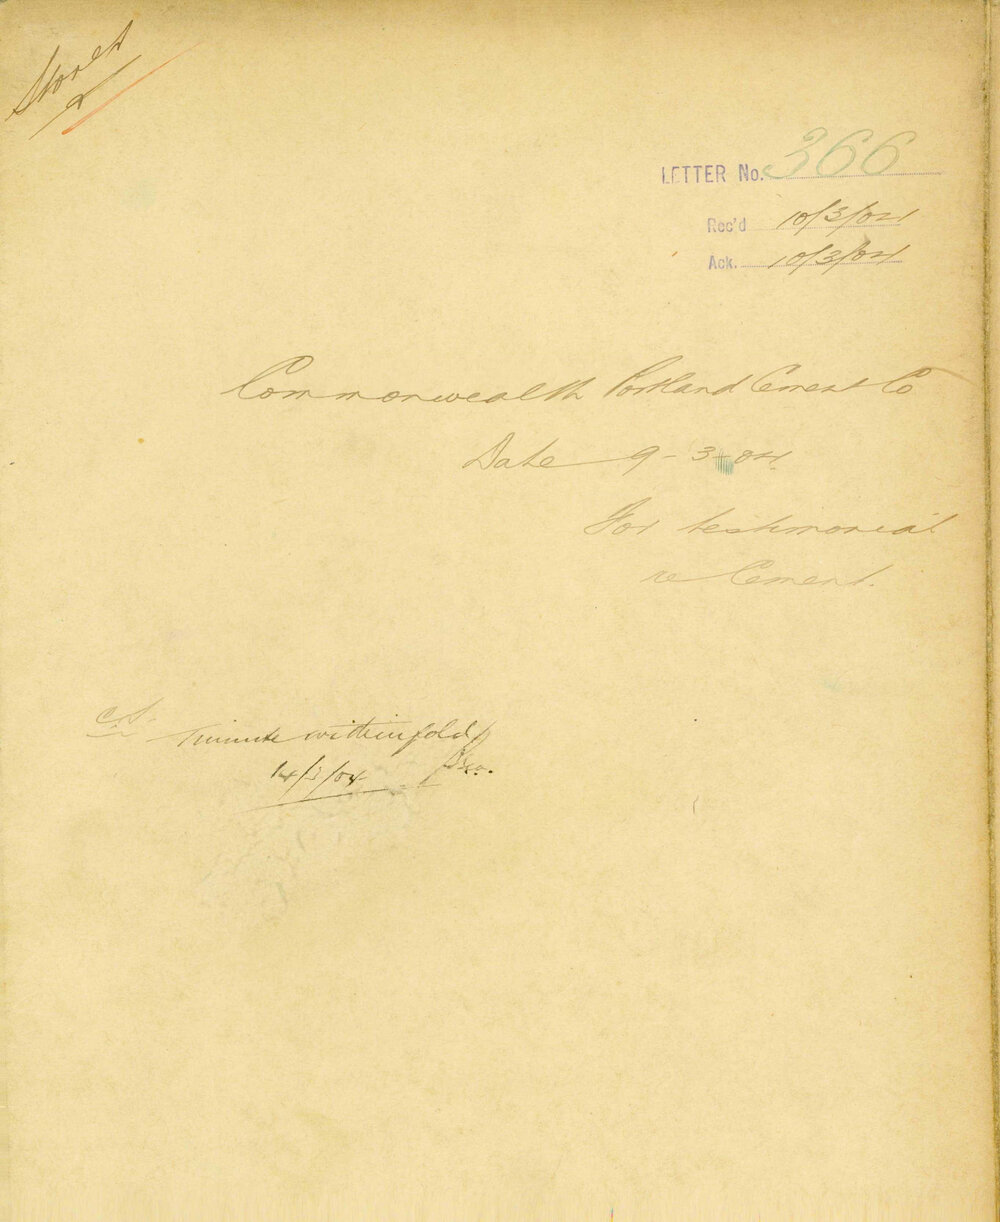 Stores
LETTER No. 366
Rec'd 10/3/04
Ack. 10/3/04
Commonwealth Portland Cement Co
Date 9-3-04.
For testimonial
re Cement.
C.S. minute withinfold
14/3/04